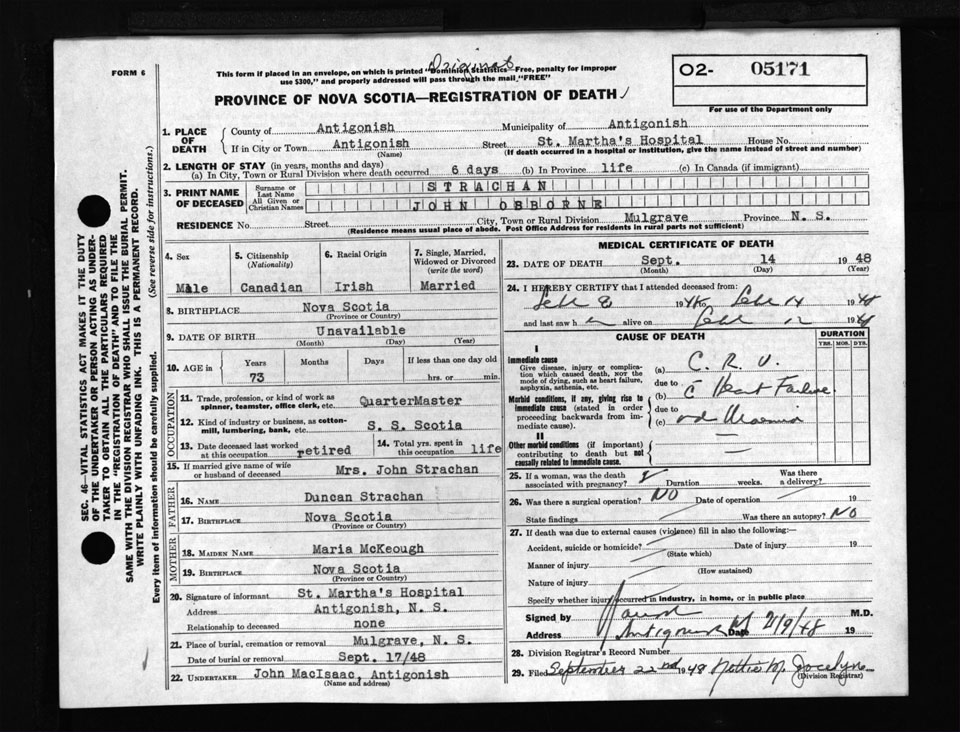 FORM 6
Original
This form if placed in an envelope, on which is printed "Dominion Statistics Free, penalty for improper
use $300," and properly addressed will pass through the mail "FREE"
PROVINCE OF NOVA SCOTIA—REGISTRATION OF DEATH
O2- 05171
For use of the Department only
SEC. 46—VITAL STATISTICS ACT MAKES IT THE DUTY
OF THE UNDERTAKER OR PERSON ACTING AS UNDER-
TAKER TO OBTAIN ALL THE PARTICULARS REQUIRED
IN THE "REGISTRATION OF DEATH" AND TO FILE THE
SAME WITH THE DIVISION REGISTRAR WHO SHALL ISSUE THE BURIAL PERMIT.
WRITE PLAINLY WITH UNFADING INK. THIS IS A PERMANENT RECORD.
Every item of information should be carefully supplied. (See reverse side for instructions.)
1. PLACE OF DEATH County of Antigonish Municipality of Antigonish
If in City or Town Antigonish Street St. Martha's Hospital House No.
(Name) (If death occurred in a hospital or institution, give the name instead of street and number)
2. LENGTH OF STAY (in years, months and days)
(a) In City, Town or Rural Division where death occurred 6 days (b) In Province life (c) In Canada (if immigrant)
3. PRINT NAME OF DECEASED Surname or Last Name STRACHAN
All Given or Christian Names JOHN OSBORNE
RESIDENCE No. Street City, Town or Rural Division Mulgrave Province N. S.
(Residence means usual place of abode. Post Office Address for residents in rural parts not sufficient)
4. Sex 5. Citizenship (Nationality) 6. Racial Origin 7. Single, Married, Widowed or Divorced (write the word)
Male Canadian Irish Married
8. BIRTHPLACE Nova Scotia
(Province or Country)
9. DATE OF BIRTH Unavailable
(Month) (Day) (Year)
10. AGE in Years Months Days If less than one day old
73 hrs. or min.
OCCUPATION
11. Trade, profession, or kind of work as spinner, teamster, office clerk, etc. QuarterMaster
12. Kind of industry or business, as cotton-mill, lumbering, bank, etc. S. S. Scotia
13. Date deceased last worked at this occupation retired 14. Total yrs. spent in this occupation life
15. If married give name of wife or husband of deceased Mrs. John Strachan
FATHER
16. NAME Duncan Strachan
17. BIRTHPLACE Nova Scotia
(Province or Country)
MOTHER
18. MAIDEN NAME Maria McKeough
19. BIRTHPLACE Nova Scotia
(Province or Country)
20. Signature of informant St. Martha's Hospital
Address Antigonish, N. S.
Relationship to deceased none
21. Place of burial, cremation or removal Mulgrave, N. S.
Date of burial or removal Sept. 17/48
22. UNDERTAKER John MacIsaac, Antigonish
(Name and address)
MEDICAL CERTIFICATE OF DEATH
23. DATE OF DEATH Sept. 14 1948
(Month) (Day) (Year)
24. I HEREBY CERTIFY that I attended deceased from:
8 19 to 14 1948
and last saw h alive on 19
CAUSE OF DEATH
DURATION
YRS. MOS. DYS.
I
Immediate cause
Give disease, injury or complication which caused death, NOT the mode of dying, such as heart failure, asphyxia, asthenia, etc.
(a) C. R. V.
due to
Morbid conditions, if any, giving rise to immediate cause (stated in order proceeding backwards from immediate cause).
(b) c Heart Failure
due to
(c)
II
Other morbid conditions (if important) contributing to death but not causally related to immediate cause.
25. If a woman, was the death associated with pregnancy? Duration weeks. Was there a delivery?
26. Was there a surgical operation? NO Date of operation 19
State findings Was there an autopsy? NO
27. If death was due to external causes (violence) fill in also the following:—
Accident, suicide or homicide? Date of injury 19
(State which)
Manner of injury
(How sustained)
Nature of injury
Specify whether injury occurred in industry, in home, or in public place
Signed by M.D.
Address Antigonish Date 21/9/48 19
28. Division Registrar's Record Number
29. Filed September 22nd 1948 Nettie M. Jocelyn
(Division Registrar)